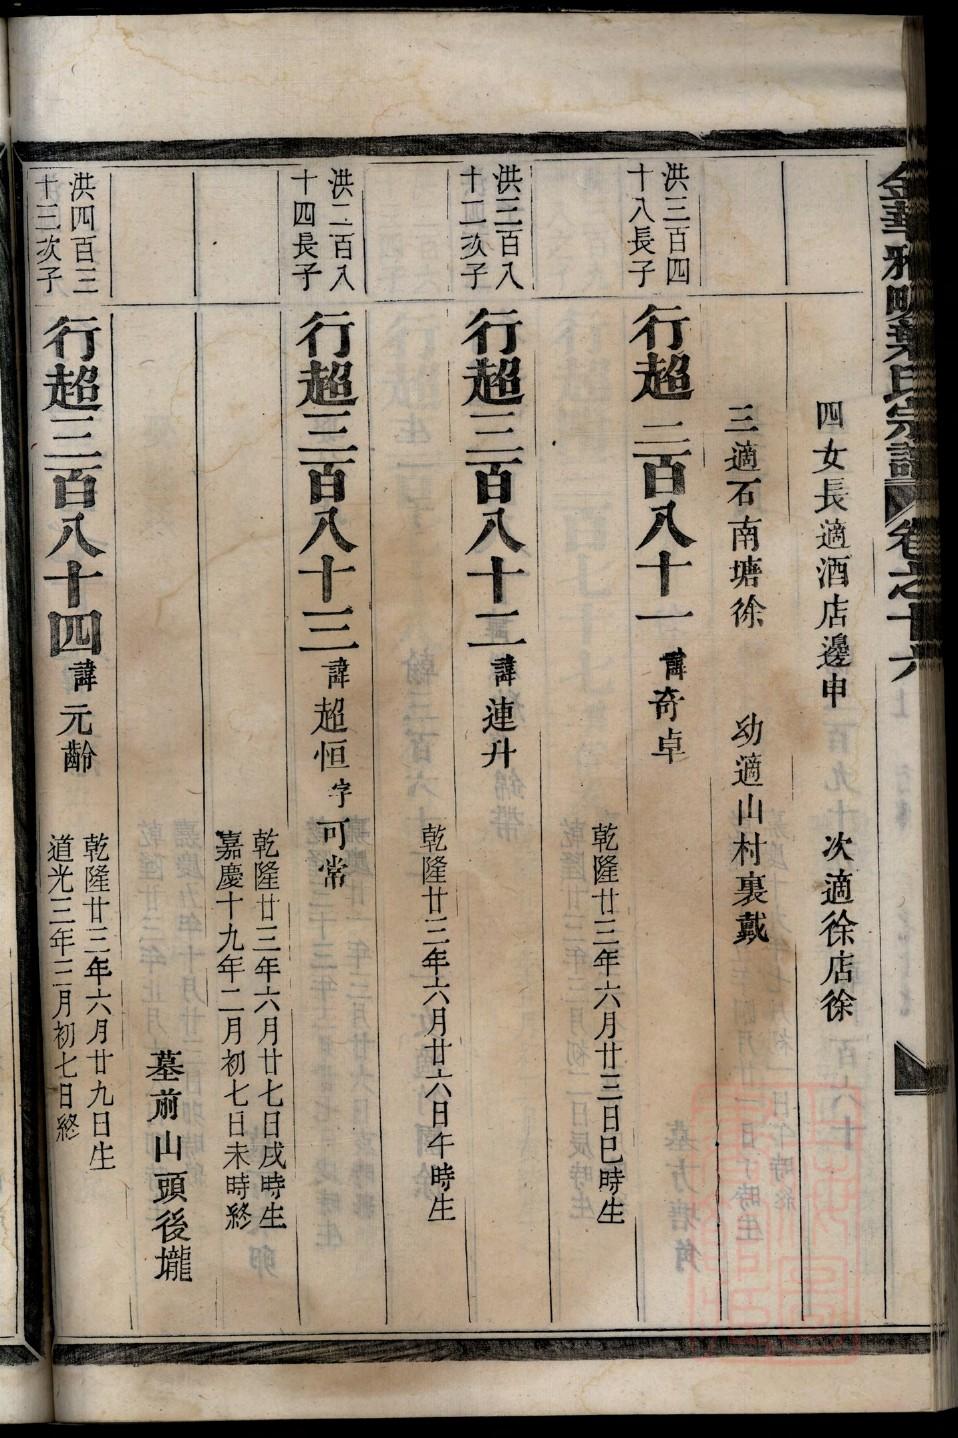 金華雅畈葉氏宗譜 卷之十六
四女長適酒店邊申 次適徐店徐
三適石南塘徐 幼適山村裏戴
洪三百四
十八長子
行超三百八十一 諱奇卓
乾隆廿三年六月廿三日巳時生
洪三百八
十二次子
行超三百八十二 諱連升
乾隆廿三年六月廿六日午時生
洪二百八
十四長子
行超三百八十三 諱超恒字可常
乾隆廿三年六月廿七日戌時生
嘉慶十九年二月初七日未時終
墓前山頭後壠
洪四百三
十三次子
行超三百八十四 諱元齡
乾隆廿三年六月廿九日生
道光三年三月初七日終